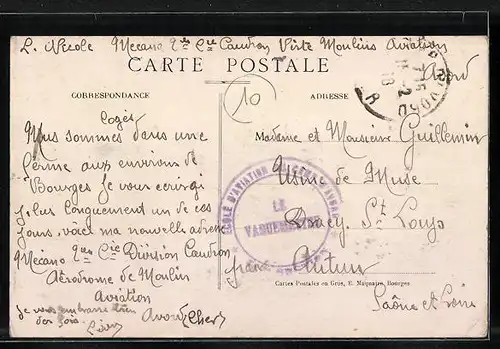 L. Nicole Mecano 2me Cie Caudron Moulins Aviation
CARTE POSTALE
Avord
CORRESPONDANCE
ADRESSE
10
Nous sommes dans une
ferme aux environ de
Bourges Je vous ecrirai
plus longuement un de ces
jours, voici ma nouvelle adresse
Mecano 2me Cie Division Caudron
Aérodrome de Moulin
Aviation
Avord Cher
Je vous embrasse bien
Madame et Monsieur Guillemin
Usine de Muse
Dracy St Loup
Autun
Saône et Loire
ECOLE D'AVIATION MILITAIRE
LE
VAGUEMESTRE
Cartes Postales en Gros, E. Maquaire, Bourges